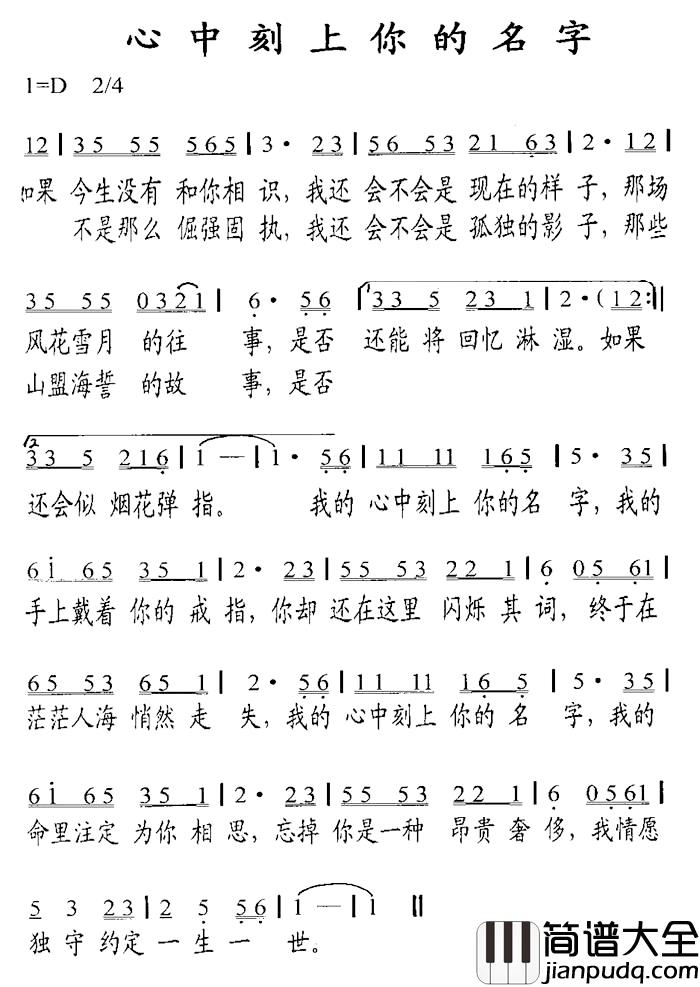 心中刻上你的名字
1=D 2/4
12 | 35 55 565 | 3· 23 | 56 53 21 63 | 2· 12 |
如果 今生没有 和你相 识，我还 会不会是 现在的样 子，那场
不是那么 倔强固 执，我还 会不会是 孤独的影 子，那些
35 55 0321 | 6· 56 | 33 5 23 1 | 2·(12:||
风花雪月 的往 事，是否 还能 将 回忆 淋 湿。如果
山盟海誓 的故 事，是否
2
33 5 216 | 1 — | 1· 56 | 11 11 165 | 5· 35 |
还会似 烟花弹 指。 我的 心中刻上 你的名 字，我的
6i 65 35 1 | 2· 23 | 55 53 22 1 | 6 05 61 |
手上戴着 你的 戒 指，你却 还在这里 闪烁 其 词，终于在
65 53 65 1 | 2· 56 | 11 11 16 5 | 5· 35 |
茫茫人海 悄然 走 失，我的 心中刻上 你的 名 字，我的
6i 65 35 1 | 2· 23 | 55 53 22 1 | 6 0561 |
命里注定 为你 相 思，忘掉 你是一种 昂贵 奢 侈，我情愿
5 3 23 | 2 5 56 | 1 — | 1 ||
独 守 约定 一 生 一 世。
简谱大全
jianpudq.com